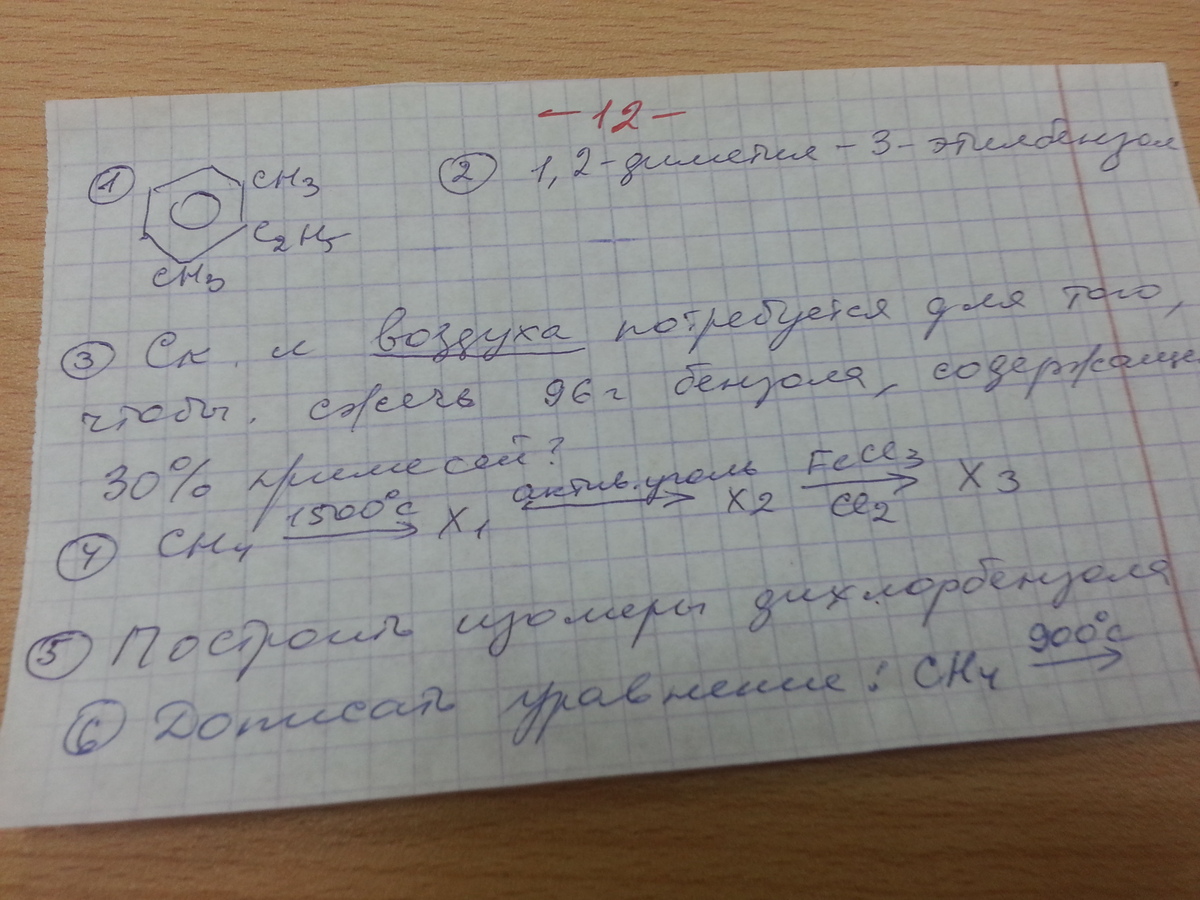 -12-
① CH3 ② 1,2-диметил-3-этилбензол
C2H5
CH3
③ Ск. л воздуха потребуется для того,
чтобы. сжечь 96г бензола, содержаще
30% примесей?
④ CH4 1500°C → X1 актив. уголь → X2 FeCl3 → Cl2 X3
⑤ Построить изомеры дихлорбензола
⑥ Дописать уравнение: CH4 900°C →